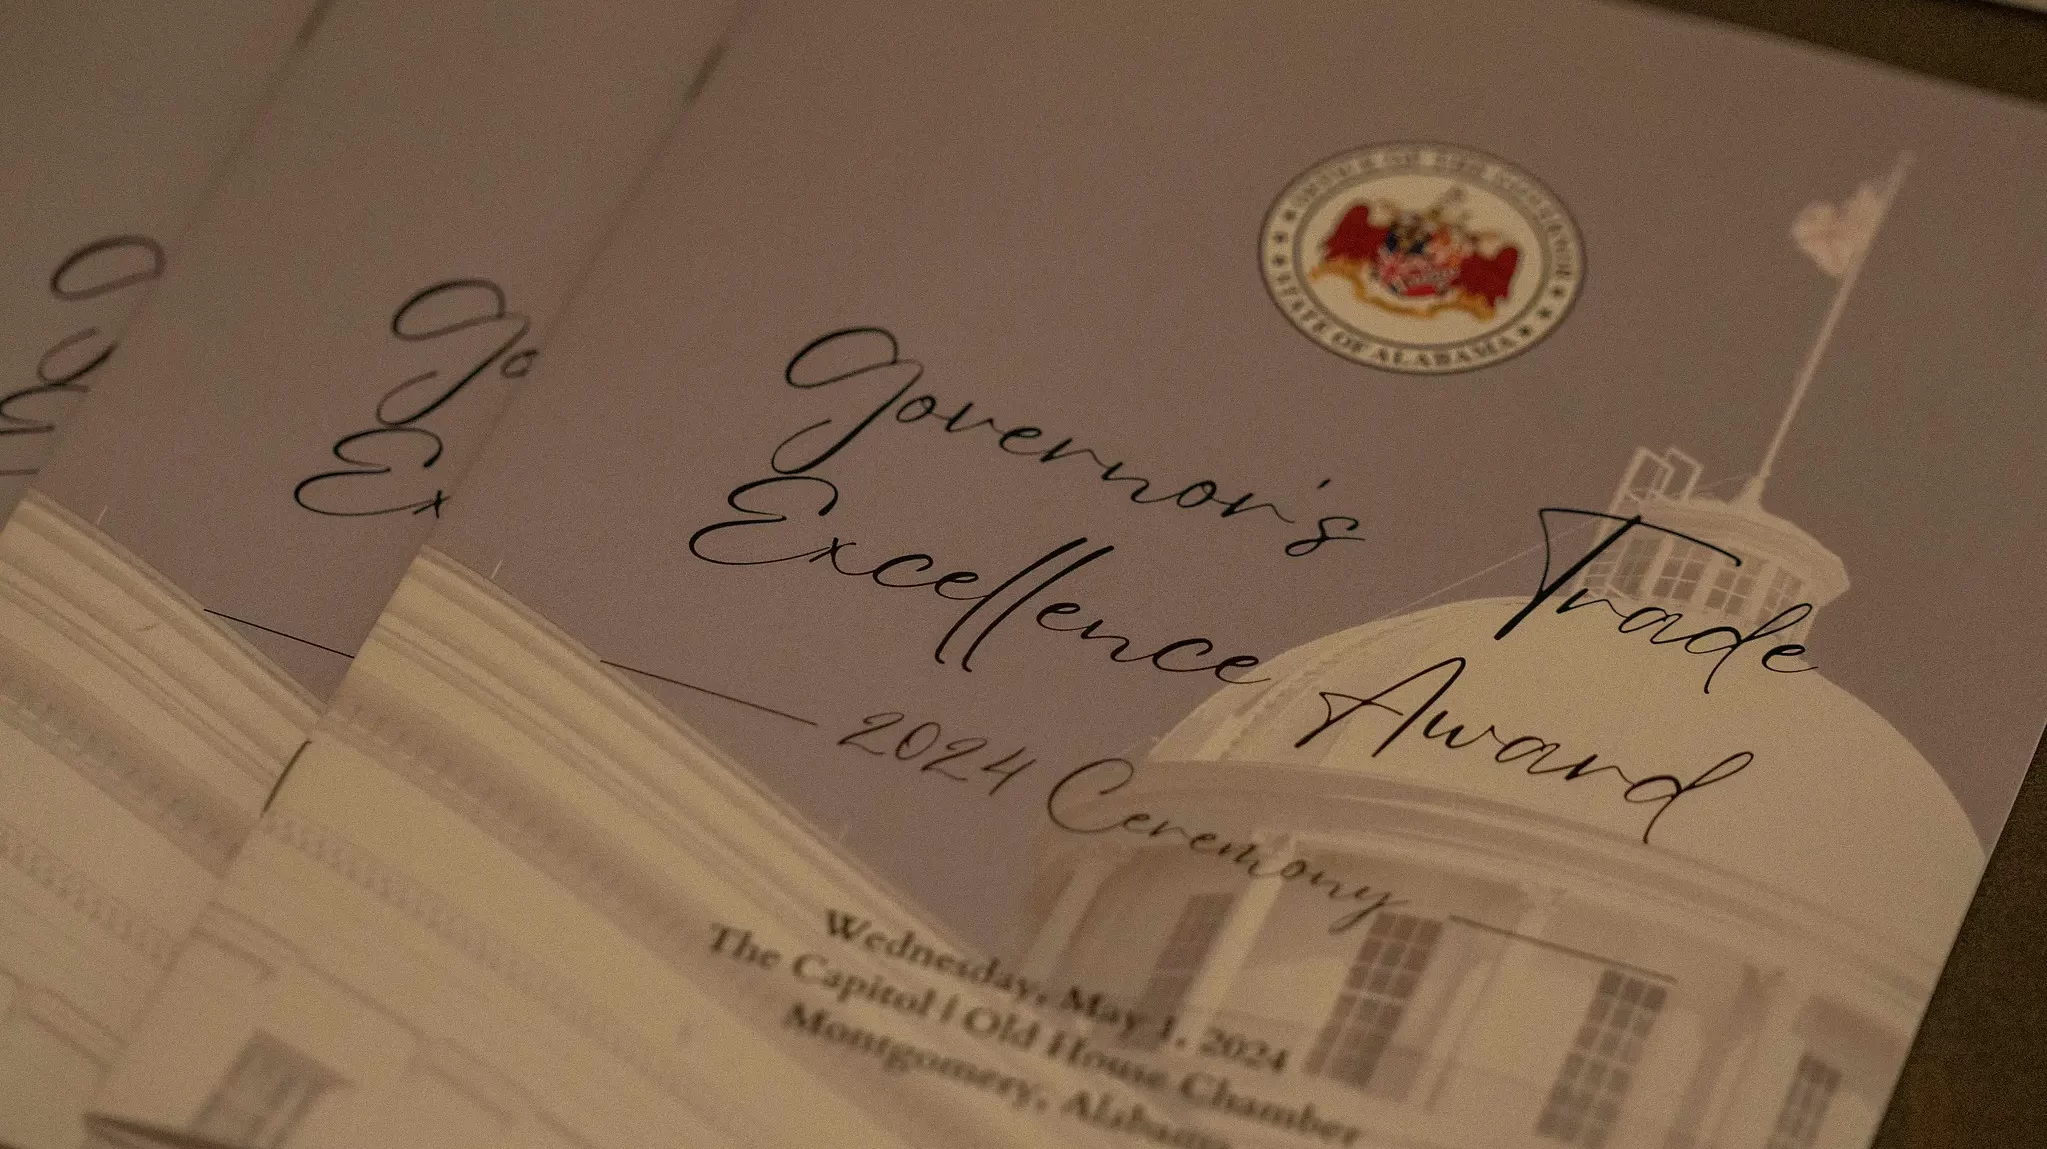 Go
Ex
OFFICE OF THE GOVERNOR
STATE OF ALABAMA
Governor's Trade
Excellence Award
2024 Ceremony
Wednesday, May 1, 2024
The Capitol | Old House Chamber
Montgomery, Alabama